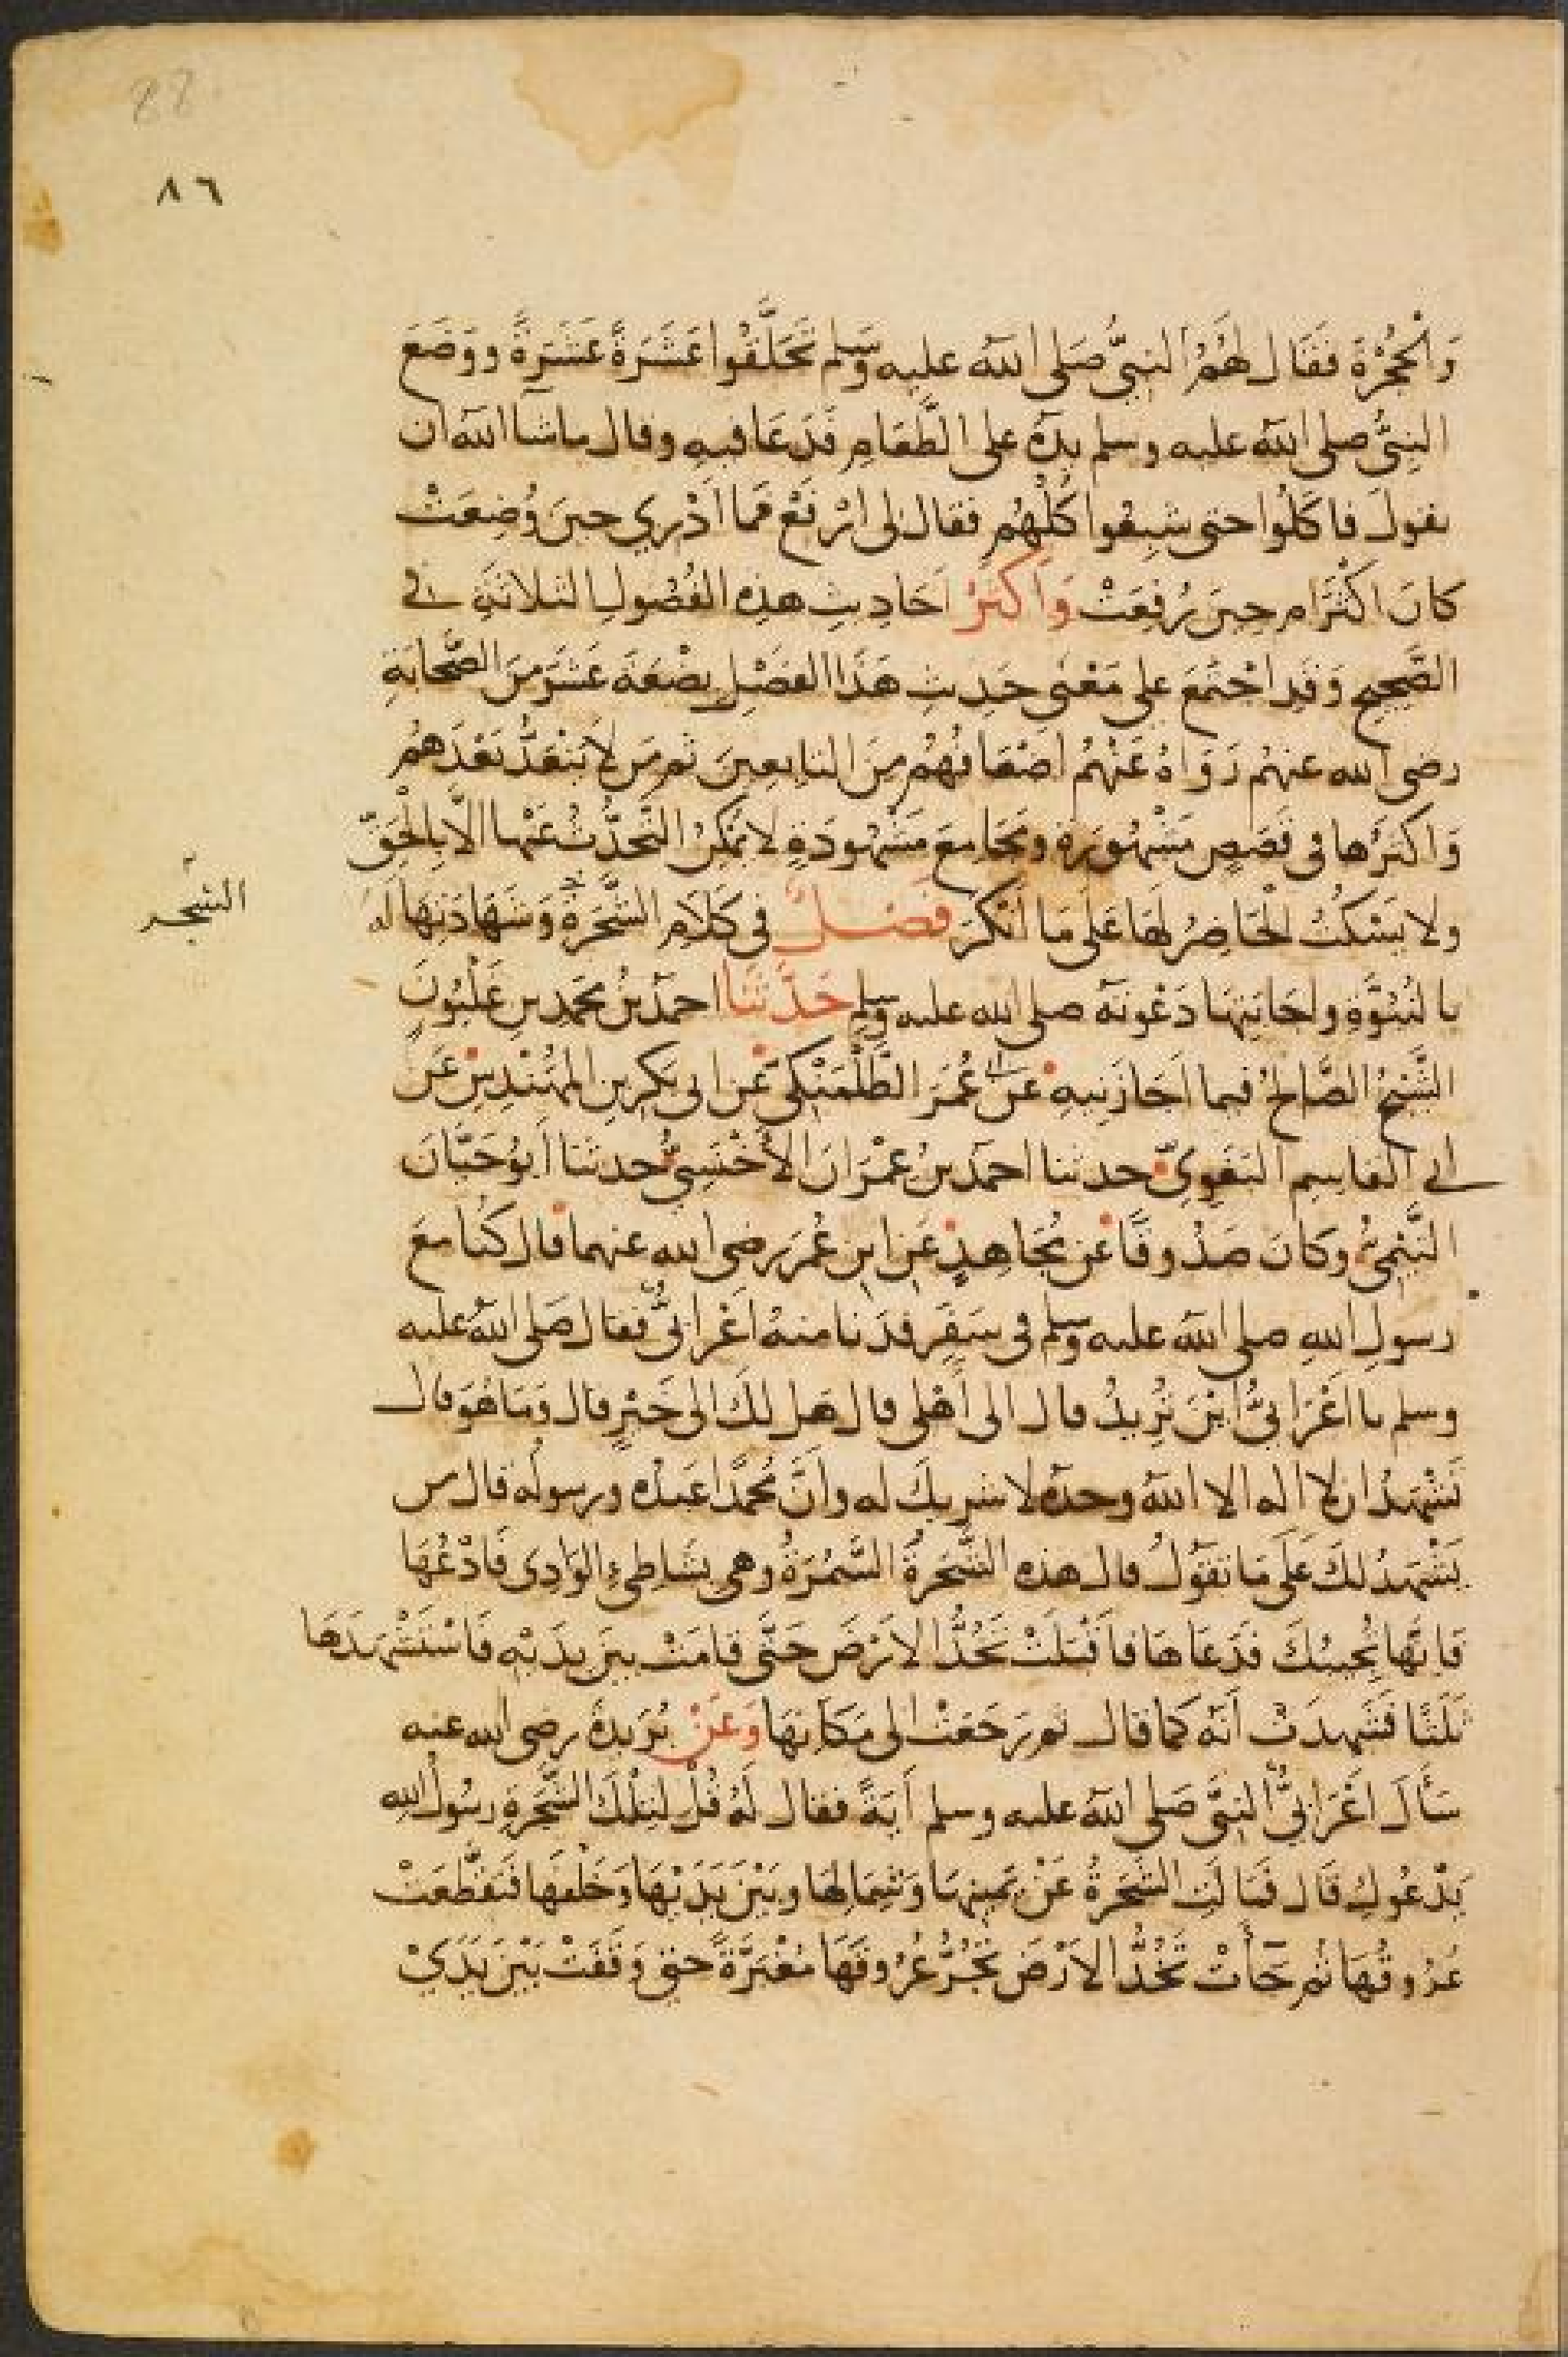 88
٨٦
وَالْحُجْرَةَ فَقَال لَهُمُ النبيُّ صَلى اللهُ عليه وسَلم تَحَلَّقُوا عَشَرَةً عَشَرَةً ووَضَعَ
النبيُّ صلى اللهُ عليه وسلم يدَهُ على الطَّعَامِ فَدَعَا فيهِ وقال ماشآ اللهُ ان
يقولَ فاكَلُوا حتى شبِعُوا كُلُّهُم فقال لى ارْفَعْ فَما اَدْرِي حينَ وُضِعَتْ
كانَ اكْثَرَ ام حِينَ رُفِعَتْ وَاَكثرُ اَحَادِيثِ هذِه الفُصُولِ الثلاثَةِ في
الصَّحِيحِ وَقَدِ اجْتَمَعَ على مَعْنى حَدِيثِ هَذا الفَصْلِ بِضْعَةَ عَشَرَ مِنَ الصَّحابَةِ
رضى الله عنهم رَوَاهُ عَنْهُم اَضْعَافُهُم مِنَ التابعينَ ثم مَن لا يَنْعَدُّ بَعْدَهُم
وَاكثرُها فى قَصَصٍ مَشْهُورَةٍ ومَجَامِعَ مَشْهُودَةٍ لا يُمْكِنُ التَّحَدُّثُ عَنْها الَّا بِالْحَقِّ
ولا يَسْكُتُ الْحَاضِرُ لَهَا عَلَى مَا اَنْكَرَ فَصْلٌ فى كَلَامِ الشَّجَرَةِ وَشَهَادَتِهَا لَهُ
الشجر
بالنُّبُوَّةِ واِجَابَتِهَا دَعْوَتَهُ صلى الله عليه وسلم حَدَّثَنَا احمَدُ بنُ مُحَمَّدِ بنِ غَلْبُونَ
الشَّيْخُ الصَّالِحُ فيما اَجَازَنِيهِ عَن ابى عُمَرَ الطَّلَمَنْكِي عَن ابى بَكرِ بنِ المهَنْدِسِ عَن
ابى القاسِمِ البَغَوِىِّ حدثنا احمَدُ بنُ عِمْرَانَ الأَخْنَسِيُّ حدثنا اَبُو حَيَّانَ
التَّيْمِىُّ وكَانَ صَدُوقًا عَن مُجَاهِدٍ عَنِ ابنِ عُمَرَ رضى الله عنهما قال كُنا معَ
رسولِ اللهِ صلى اللهُ عليه وسلم فى سَفَرٍ فدَنا منهُ اَعْرابيٌّ فقال صَلى اللهُ عليه
وسلم يا اَعْرَابيُّ اَيْنَ تُرِيدُ قال الى اَهْلى قال هَل لكَ الى خَيْرٍ قال ومَا هُوَ قال
تَشْهَدُ ان لا اله الا اللهُ وحدَهُ لا شريكَ له واَنَّ مُحَمَّدًا عَبدُه ورسولُه قال من
يَشْهَدُ لكَ عَلَى مَا تقُولُ قال هذه الشَّجَرَةُ السَّمُرَةُ وهى بشَاطِىءِ الوَادِى فَادْعُهَا
فَانَّها تُجيبُكَ فدَعَاهَا فاَقْبَلَتْ تَخُدُّ الارضَ حَتَّى قامَتْ بينَ يدَيْهِ فَاسْتَشْهَدَهَا
ثَلثًا فَشَهِدَتْ اَنَّهُ كما قال ثم رَجَعَتْ الى مَكَانِهَا وَعَنْ بُرَيدَةَ رضى الله عنه
سَأَلَ اعْرَابيٌّ النبيَّ صَلى اللهُ عليه وسلم آيَةً فقال لَهُ قُلْ لتلْكَ الشَّجَرةِ رسُولُ اللهِ
يَدْعُوكِ قَال فَمَالَتِ الشَّجَرَةُ عَنْ يَمينِهَا وشِمَالِهَا وبَيْنَ يَدَيْهَا وَخَلْفَها فَتَقَطَّعَتْ
عُرُوقُهَا ثُم جَآَتْ تَخُدُّ الارْضَ تَجُرُّ عُرُوقَهَا مُغْبَرَّةً حتى وَقَفَتْ بَيْنَ يَدَيْ